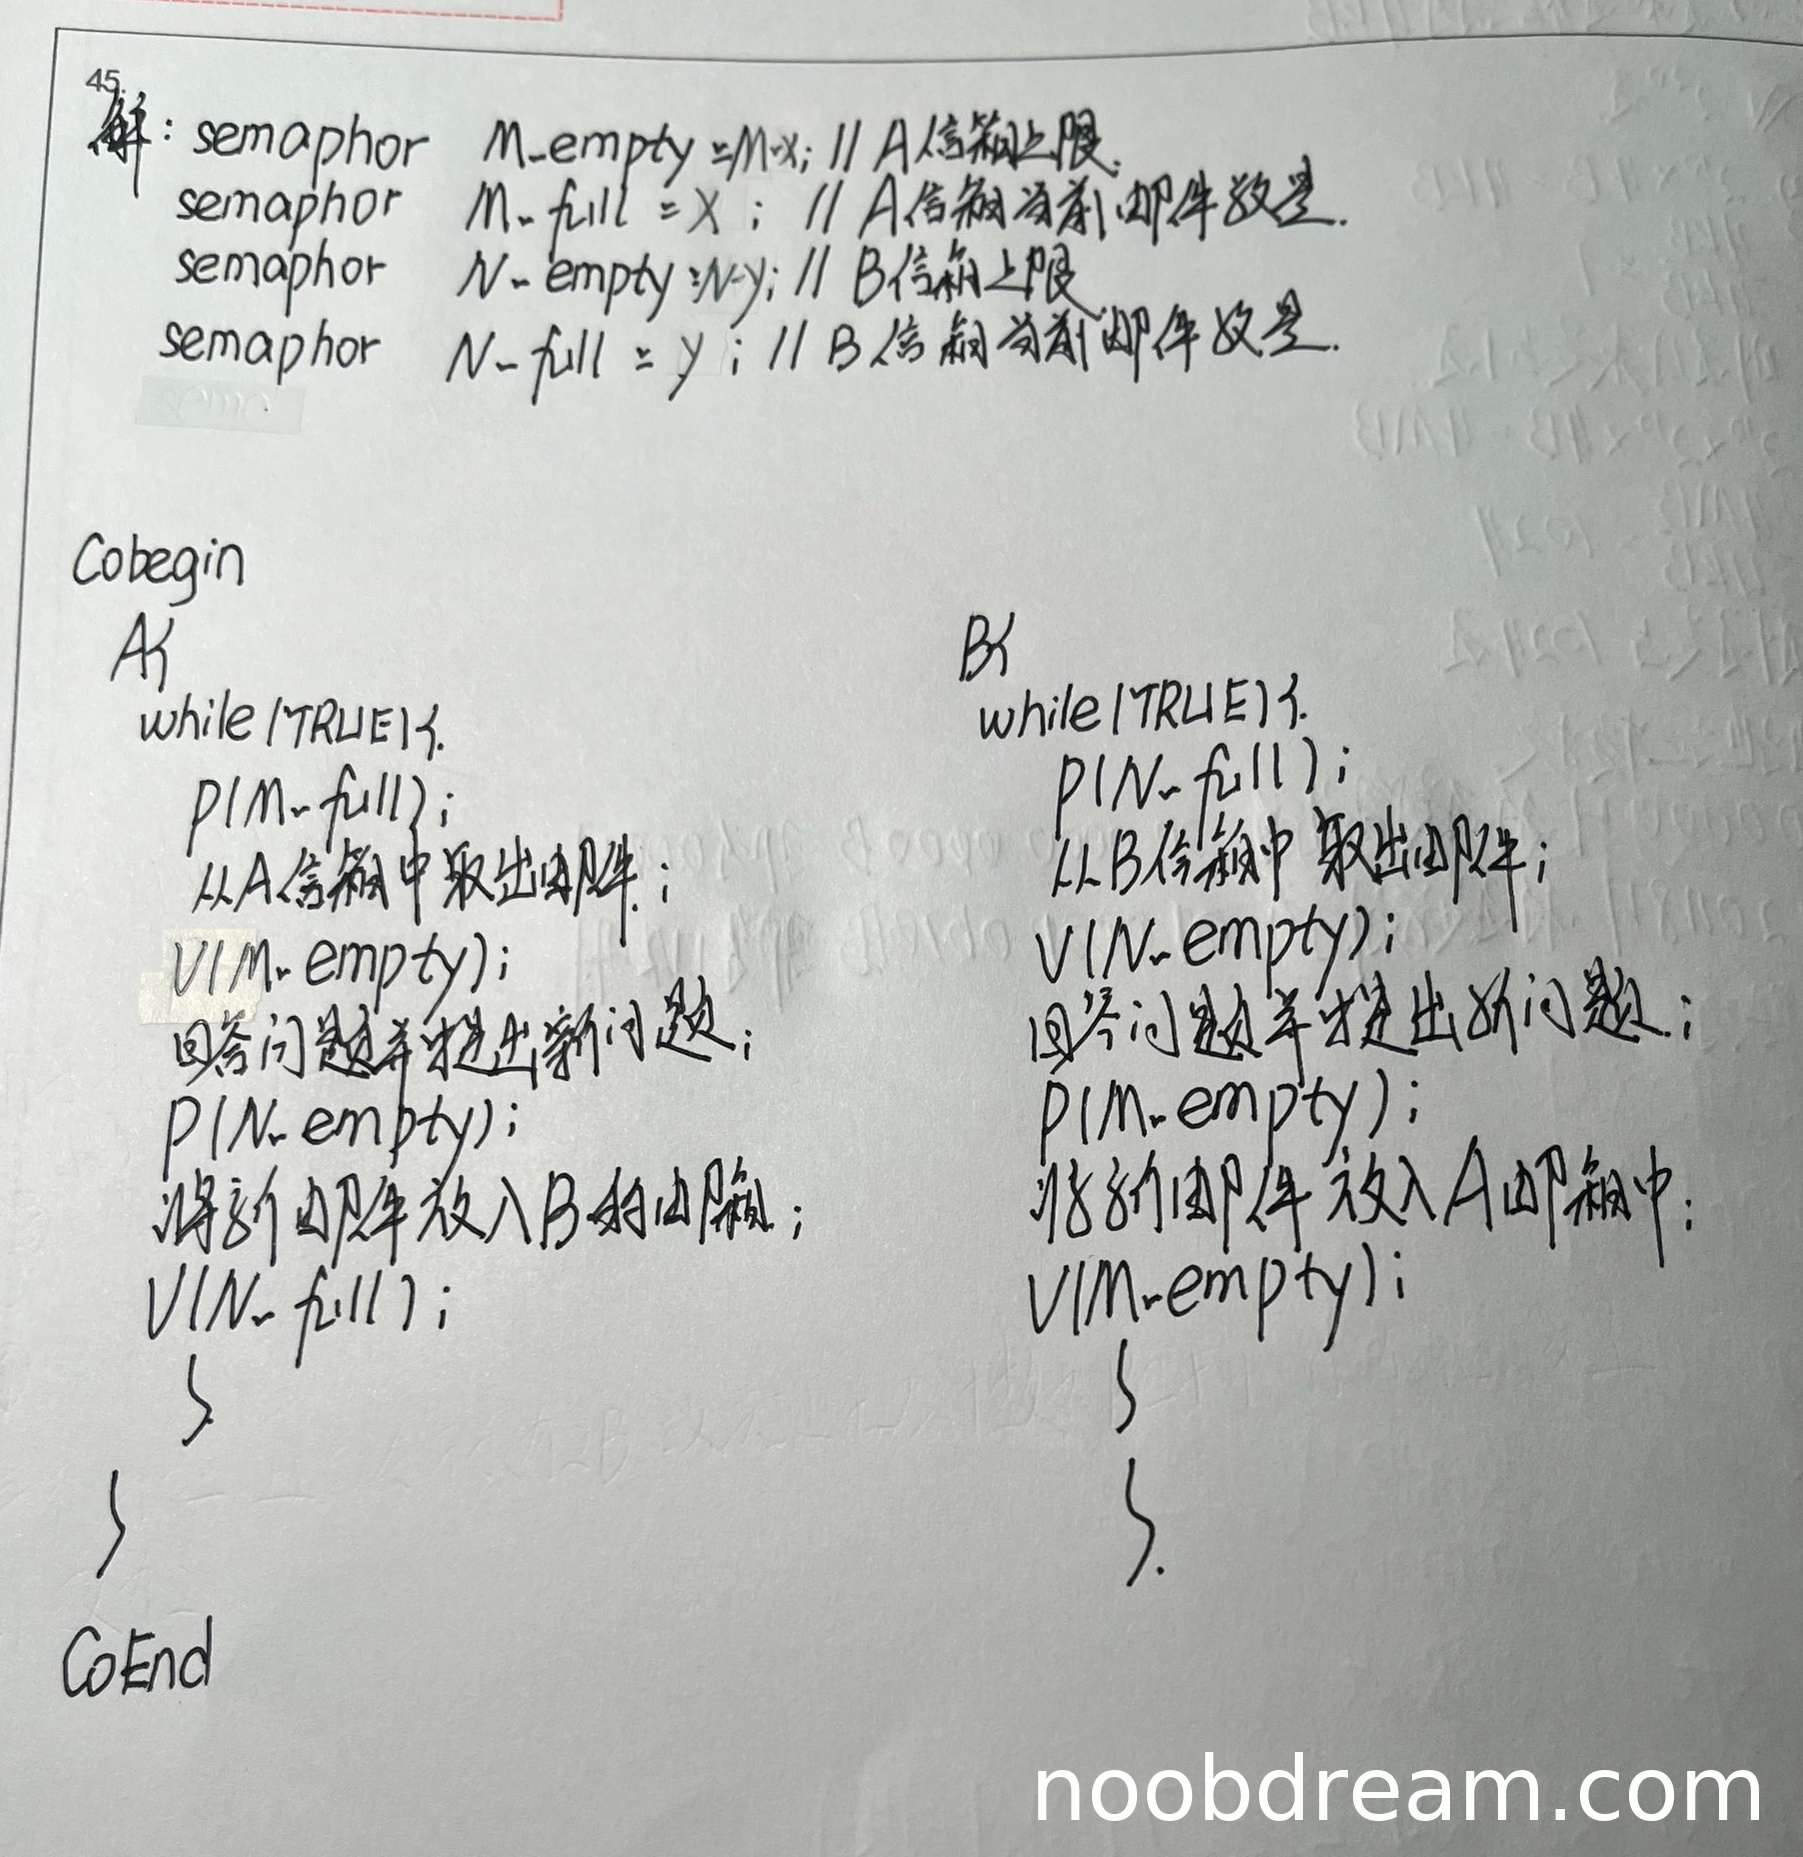 45.
解: semaphor M_empty=M-x; // A信箱上限.
semaphor M_full = x; // A信箱当前邮件数量.
semaphor N_empty=N-y; // B信箱上限
semaphor N_full = y; // B信箱当前邮件数量.
Cobegin
A{
while(TRUE){.
P(M_full);
从A信箱中取出邮件;
V(M_empty);
回答问题并提出新问题;
P(N_empty);
将新邮件放入B的邮箱;
V(N_full);
}.
}
B{
while(TRUE){.
P(N_full);
从B信箱中取出邮件;
V(N_empty);
回答问题并提出新问题;
P(M_empty);
将新邮件放入A邮箱中;
V(M_empty);
}
}.
CoEnd
noobdream.com